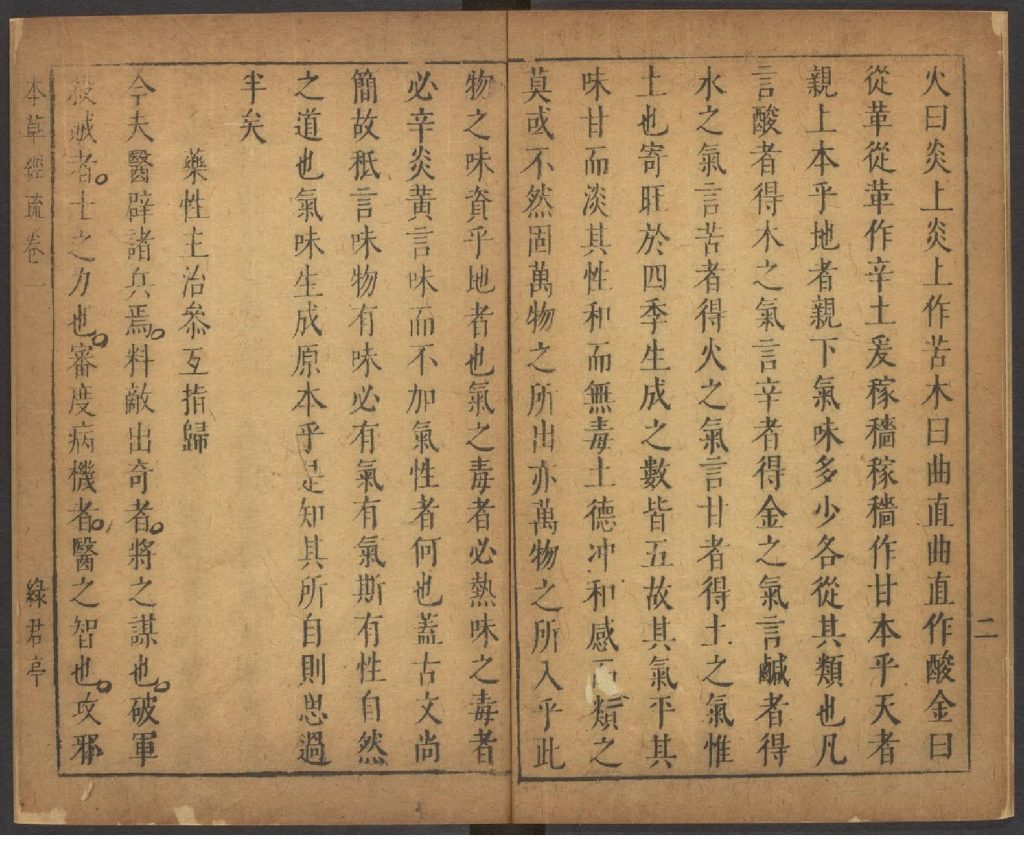 二
火曰炎上炎上作苦木曰曲直曲直作酸金曰
從革從革作辛土爰稼穡稼穡作甘本乎天者
親上本乎地者親下氣味多少各從其類也凡
言酸者得木之氣言辛者得金之氣言鹹者得
水之氣言苦者得火之氣言甘者得土之氣惟
土也寄旺於四季生成之數皆五故其氣平其
味甘而淡其性和而無毒土德冲和感而類之
莫或不然固萬物之所出亦萬物之所入乎此
物之味資乎地者也氣之毒者必熱味之毒者
必辛炎黃言味而不加氣性者何也蓋古文尚
簡故秪言味物有味必有氣有氣斯有性自然
之道也氣味生成原本乎是知其所自則思過
半矣
藥性主治參互指歸
今夫醫辟諸兵焉料敵出奇者將之謀也破軍
殺賊者士之力也審度病機者醫之智也攻邪
本草經疏卷一
綠君亭